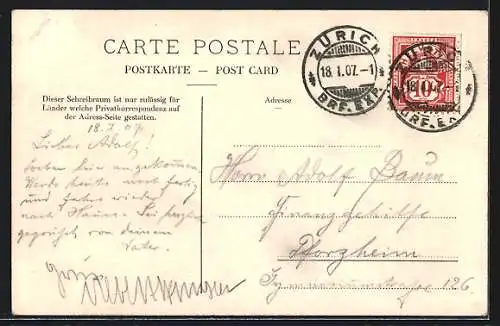 CARTE POSTALE
POSTKARTE — POST CARD
Dieser Schreibraum ist nur zulässig für
Länder welche Privatkorrespondenz auf
der Adress-Seite gestatten.
Adresse
ZÜRICH
18.I.07.-1
BRF. EXP.
ZÜRICH
18.I.07.
BRF. EXP.
10
18.I.07
Lieber Adolf!
soeben hier angekommen.
Werde heute noch fertig
und fahre wieder
nach Hause. Sei herzlich
gegrüsst von deinem
Vater.
Herrn Adolf Baum
Pforzheim
126.